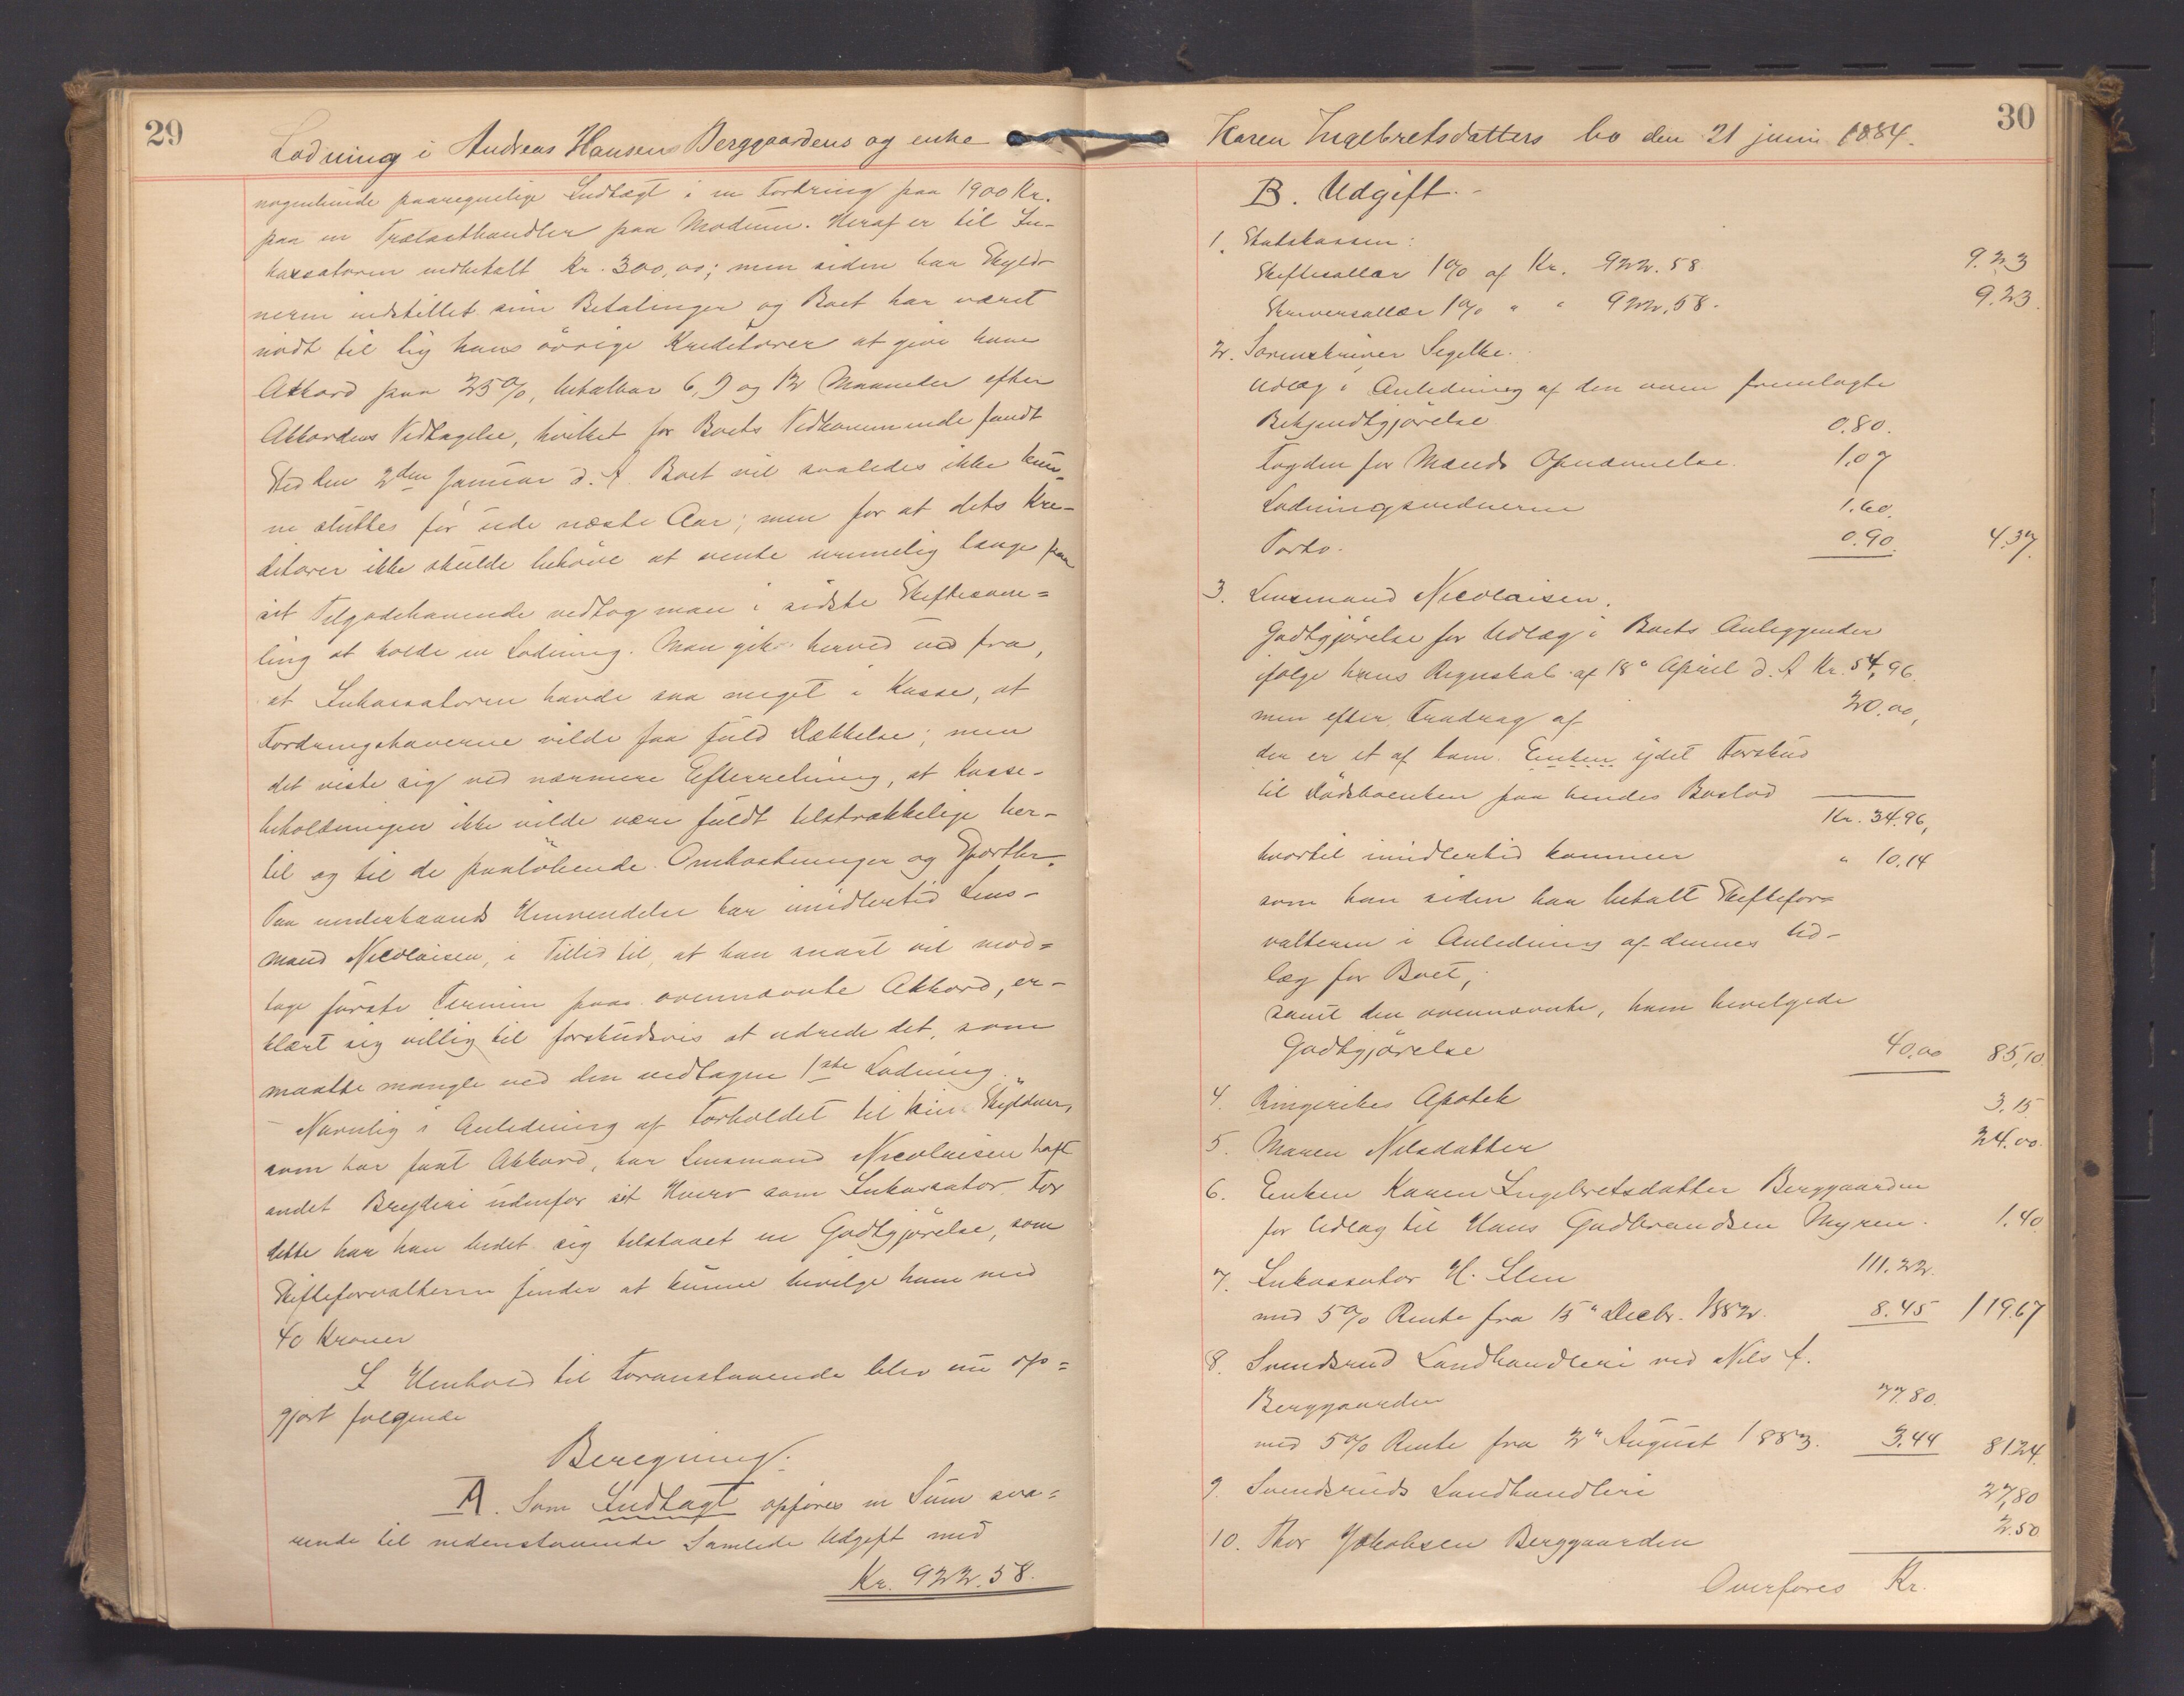 29
Lodning i Andreas Hansen Berggaardens og enke
nogenlunde paaregnelige Indtægt i en Fordring paa 1900 Kr.
paa en Trælasthandler paa Modum. Heraf er til In-
kassatoren indbetalt Kr. 300,00; men siden har Skyld-
neren indstillet sine Betalinger og Boet har været
nødt til lig hans øvrige Kreditorer at give ham
Akkord paa 25%, betalbar 6, 9 og 12 Maaneder efter
Akkordens Vedtagelse, hvilket for Boets Vedkommende fandt
Sted den 2den Januar d. A. Boet vil saaledes ikke kun-
ne sluttes før ude næste Aar; men for at dets Kre-
ditorer ikke skulde behøve at vente urimelig længe paa
sit Tilgodehavende vedtog man i sidste Skiftesam=
ling at holde en Lodning. Man gik herved ud fra,
at Inkassatoren havde saa meget i Kasse, at
Fordringshaverne vilde faa fuld Dækkelse; men
det viste sig ved nærmere Efterretning, at Kasse-
beholdningen ikke vilde være fuldt tilstrækkelige her-
til og til de paaløbende Omkostninger og Sportler.
Paa underhaands Henvendelse har imidlertid Lens-
mand Nicolaisen, i Tillid til, at han snart vil mod=
tage første Termin paa ovennævnte Akkord, er-
klært sig villig til forskudsvis at udrede det, som
maatte mangle ved den vedtagne 1ste Lodning.
Navnlig i Anledning af Forholdet til hin Skyldner,
som har faat Akkord, har Lensmand Nicolaisen haft
andet Bryderi udenfor sit Hverv som Inkassator. For
dette har han bedet sig tilstaaet en Godtgjørelse, som
Skifteforvalteren finder at kunne bevilge ham med
40 Kroner
I Henhold til Foranstaaende blev nu op=
gjort følgende
Beregning.
A. Som Indtægt opføres en Sum sva=
rende til nedenstaaende Samlede Udgift med
Kr. 922.58.
30
Karen Ingebretsdatters bo den 21 juni 1884.
B. Udgift.
1. Statskassen:
Skiftesallær 1% af Kr. 922.58 9.23
Skriversallær 1% " " 922.58. 9.23.
2. Sorenskriver Segelke.
Udlæg i Anledning af den oven fremlagte
Bekjendtgjørelse 0.80.
Fogden for Mænds Opnævnelse. 1.07
Lodningsmændene 1.60.
Porto. 0.90. 4.37.
3. Lensmand Nicolaisen.
Godtgjørelse for Udlæg i Boets Anliggender
ifølge hans Regnskab af 18" April d. A Kr. 54,96.
men efter Fradrag af 20.00,
der er et af ham Enken ydet Forskud
til Dødsboenken paa hendes Boslod
Kr. 34.96,
hvortil imidlertid kommer " 10.14
som han siden har betalt Skiftefor=
valteren i Anledning af dennes Ud-
læg for Boet,
samt den ovennævnte, ham bevilgede
Godtgjørelse 40.00 85,10.
4. Ringerikes Apotek 3.15
5. Maren Nilsdatter 24.00.
6. Enken Karen Ingebretsdatter Berggaarden
for Udlæg til Hans Gudbrandsen Myren. 1.40
7. Inkassator H. Lien 111.22.
med 5% Rente fra 15" Decbr. 1882. 8.45 119.67
8. Svendsrud Landhandleri ved Nils A.
Berggaarden 77.80.
med 5% Rente fra 2" August 1883. 3.44 81.24.
9. Svendsruds Landhandleri 27,80
10. Thor Jakobsen Berggaarden 2.50
Overføres Kr.